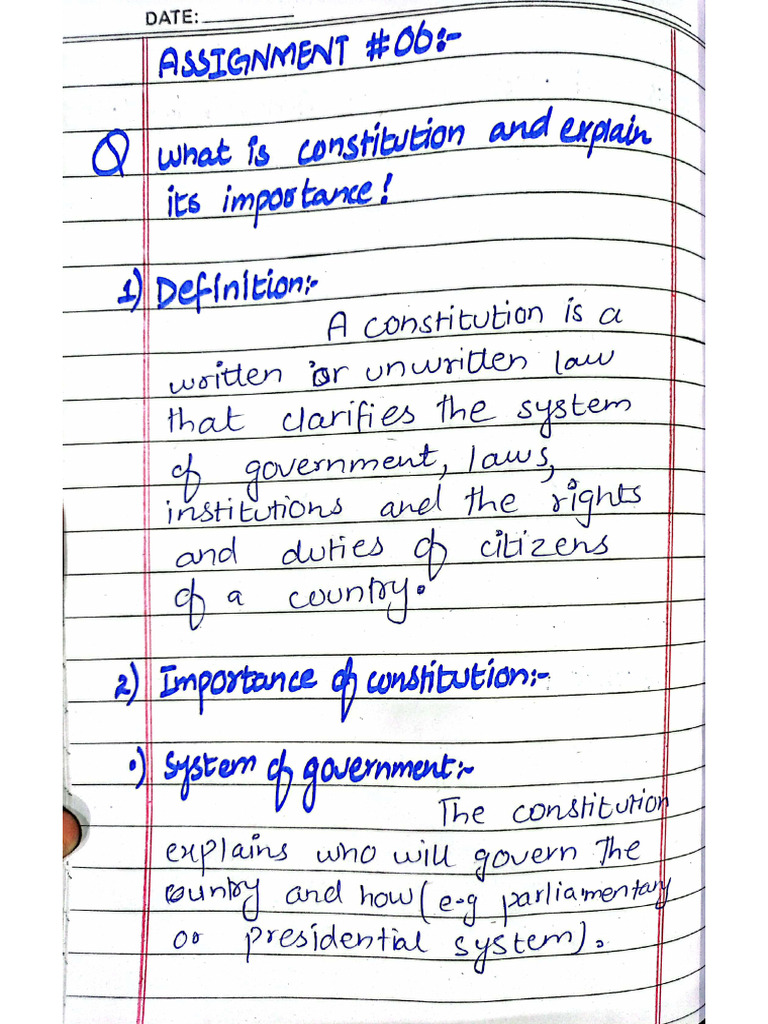 DATE:
ASSIGNMENT #06:-
Q what is constitution and explain
its importance!
1) Definition:-
A constitution is a
written or unwritten law
that clarifies the system
of government, laws,
institutions and the rights
and duties of citizens
of a country.
2) Importance of constitution:-
•) System of government:-
The constitution
explains who will govern the
country and how (e-g parliamentary
or presidential system).